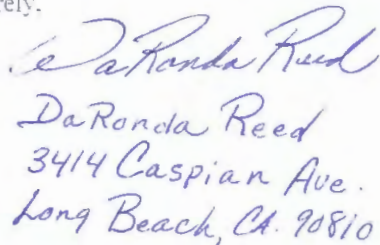 DaRonda Reed
DaRonda Reed
3414 Caspian Ave.
Long Beach, CA. 90810